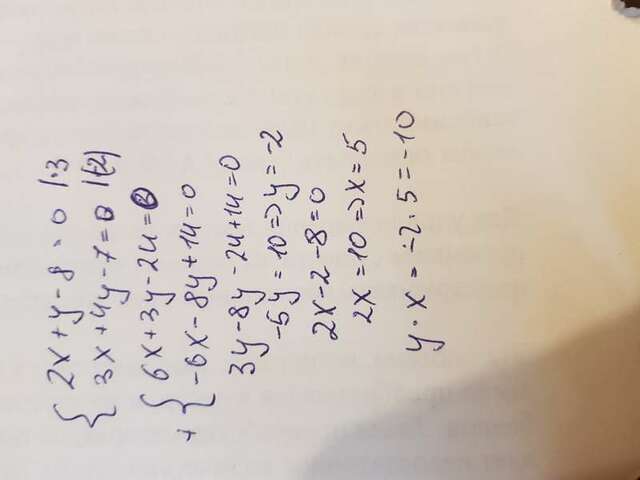 { 2x + y - 8 = 0 |·3
{ 3x + 4y - 7 = 0 |(-2)
{ 6x + 3y - 24 = 0
+ { -6x - 8y + 14 = 0
3y - 8y - 24 + 14 = 0
-5y = 10 => y = -2
2x - 2 - 8 = 0
2x = 10 => x = 5
y · x = -2 · 5 = -10